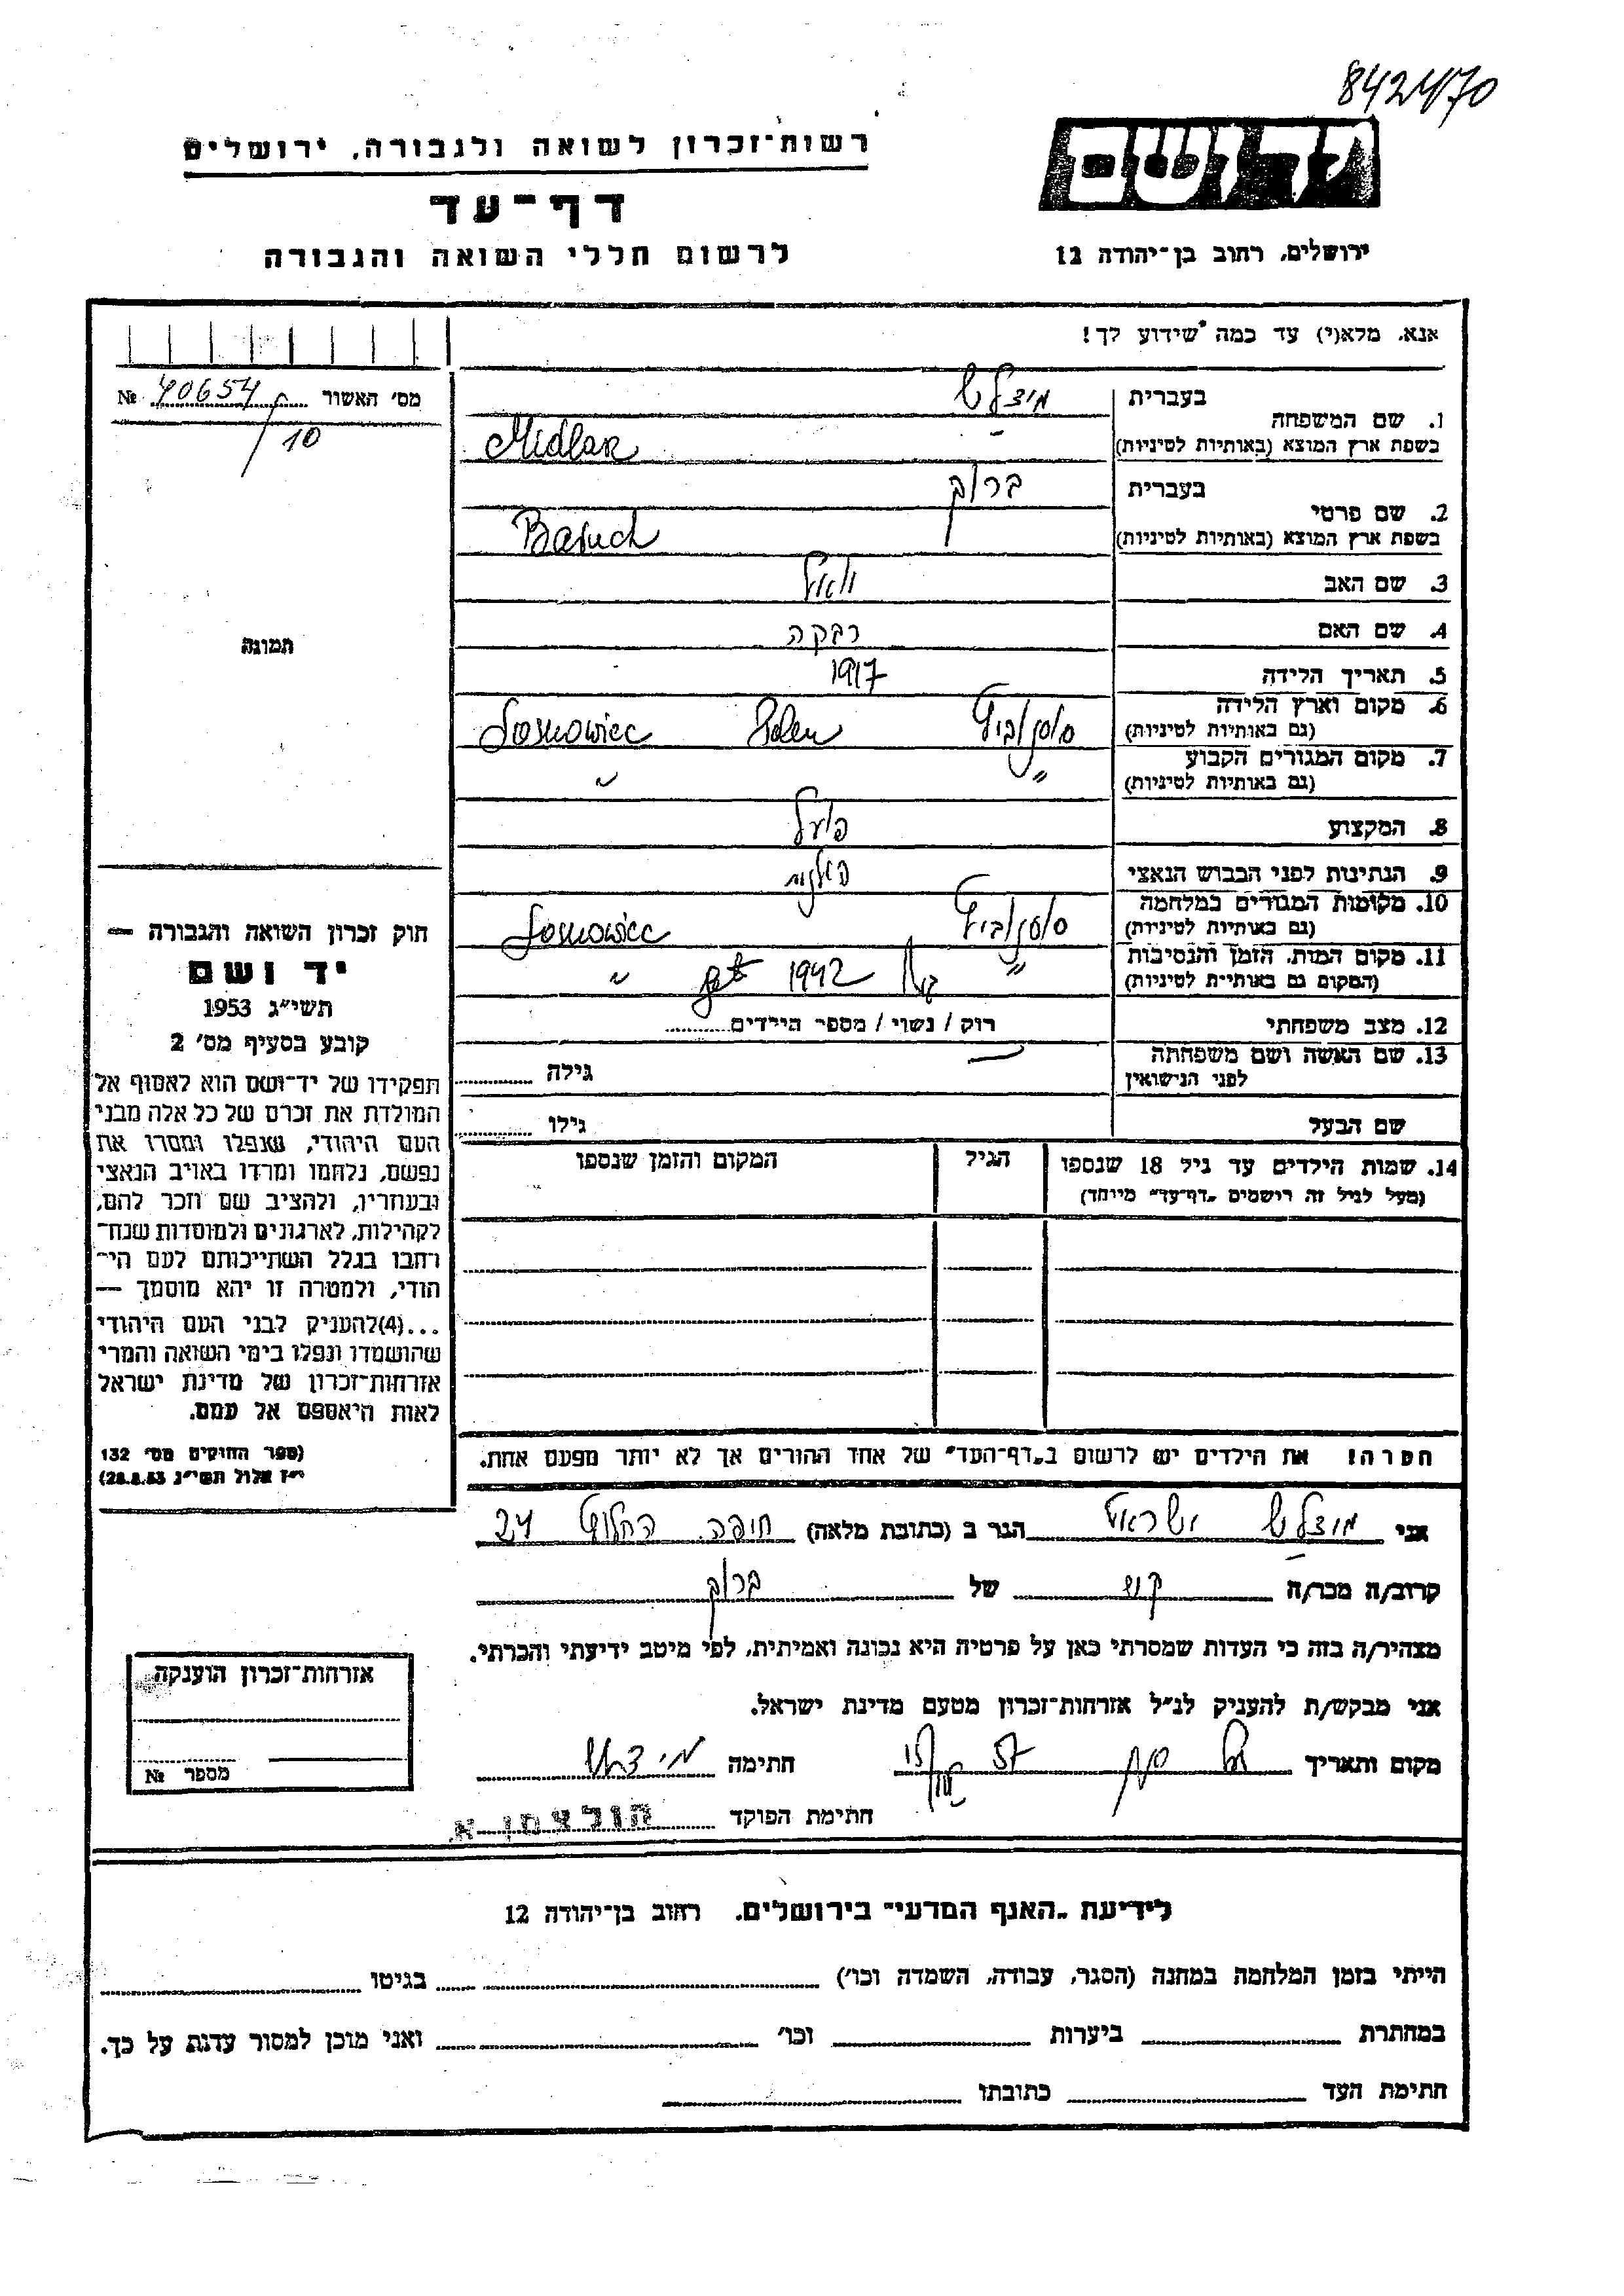 842470
רשות־זכרון לשואה ולגבורה, ירושלים
יד ושם
דף־עד
לרשום חללי השואה והגבורה
ירושלים, רחוב בן־יהודה 12
אנא, מלא(י) עד כמה שידוע לך!
מס׳ האשור 40654 №
10
1. שם המשפחה
בעברית
בשפת ארץ המוצא (באותיות לטיניות) Midlar
2. שם פרטי
בעברית ברוך
בשפת ארץ המוצא (באותיות לטיניות) Baruch
3. שם האב
4. שם האם רבקה
5. תאריך הלידה 1917
6. מקום וארץ הלידה
(גם באותיות לטיניות) סוסנוביץ Polen Sosnowiec
7. מקום המגורים הקבוע
(גם באותיות לטיניות) " "
8. המקצוע פועל
9. הנתינות לפני הכבוש הנאצי פולנית
10. מקומות המגורים במלחמה
(גם באותיות לטיניות) סוסנוביץ Sosnowiec
11. מקום המות, הזמן והנסיבות
(המקום גם באותיות לטיניות) " 1942 "
12. מצב משפחתי רוק / נשוי / מספר הילדים
13. שם האשה ושם משפחתה
לפני הנישואין גילה
שם הבעל גילו
14. שמות הילדים עד גיל 18 שנספו הגיל המקום והזמן שנספו
(מעל לגיל זה רושמים „דף־עד" מיוחד)
תמונה
חוק זכרון השואה והגבורה —
יד ושם
תשי״ג 1953
קובע בסעיף מס׳ 2
תפקידו של יד־ושם הוא לאסוף אל
המולדת את זכרם של כל אלה מבני
העם היהודי, שנפלו ומסרו את
נפשם, נלחמו ומרדו באויב הנאצי
ובעוזריו, ולהציב שם וזכר להם,
לקהילות, לארגונים ולמוסדות שנח־
רבו בגלל השתייכותם לעם הי־
הודי, ולמטרה זו יהא מוסמך —
...(4)להעניק לבני העם היהודי
שהושמדו ונפלו בימי השואה והמרי
אזרחות־זכרון של מדינת ישראל
לאות היאספם אל עמם.
(ספר החוקים מס׳ 132
י״ז אלול תשי״ג 28.8.53)
הערה! את הילדים יש לרשום ב„דף־העד" של אחד ההורים אך לא יותר מפעם אחת.
אני ישראל הגר ב (כתובת מלאה) חיפה החלוץ 24
קרוב/ה מכר/ה של ברוך
מצהיר/ה בזה כי העדות שמסרתי כאן על פרטיה היא נכונה ואמיתית, לפי מיטב ידיעתי והכרתי.
אני מבקש/ת להעניק לנ״ל אזרחות־זכרון מטעם מדינת ישראל.
מקום ותאריך חתימה
חתימת הפוקד הולצמן א.
אזרחות־זכרון הוענקה
מספר №
לידיעת „האגף המדעי" בירושלים, רחוב בן־יהודה 12
הייתי בזמן המלחמה במחנה (הסגר, עבודה, השמדה וכו׳) בגיטו
במחתרת ביערות וכו׳ ואני מוכן למסור עדות על כך.
חתימת העד כתובתו